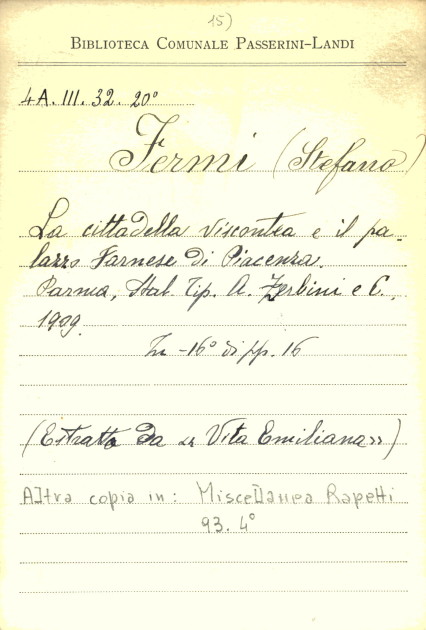 15)
BIBLIOTECA COMUNALE PASSERINI-LANDI
4A. III. 32. 20°
Fermi (Stefano)
La cittadella viscontea e il pa-
lazzo Farnese di Piacenza.
Parma, Stab. Tip. A. Zerbini e C.,
1909.
In -16° di pp. 16
(Estratto da « Vita Emiliana»)
Altra copia in: Miscellanea Rapetti
93. 4°